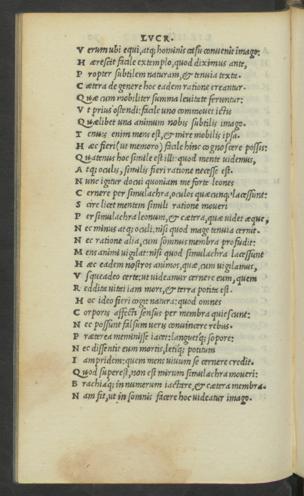 LVCR.
V erum ubi equi, atq; hominis casu conuenit imago:
H ærescit facile extemplo, quod diximus ante,
P ropter subtilem naturam, & tenuia texta.
C ætera de genere hoc eadem ratione creantur.
Q uæ cum mobiliter summa leuitate feruntur:
V t prius ostendi: facile uno commouet ictu
Q uælibet una animum nobis subtilis imago.
T enuis enim mens est, & mire mobilis ipsa.
H æc fieri (ut memoro) facile hinc cognoscere possis:
Q uatenus hoc simile est illi: quod mente uidemus,
A tq; oculis, simili fieri ratione necesse est.
N unc igitur docui quoniam me forte leones
C ernere per simulachra, oculos quæcunq; lacessunt:
S cire licet mentem simili ratione moueri
P er simulachra leonum, & cætera, quæ uidet æque,
N ec minus atq; oculi: nisi quod mage tenuia cernit.
N ec ratione alia, cum somnus membra profudit:
M ens animi uigilat: nisi quod simulachra lacessunt
H æc eadem nostros animos, quæ, cum uigilamus,
V sque adeo certe: ut uideamur cernere eum, quem
R eddita uitai iam mors, & terra potita est.
H oc ideo fieri cogit natura: quod omnes
C orporis affecti sensus per membra quiescunt:
N ec possunt falsum ueris conuincere rebus.
P ræterea meminisse iacet: languetq; sopore:
N ec dissentit eum mortis, letiq; potitum
I ampridem: quem mens uiuum se cernere credit.
Q uod superest, non est mirum simulachra moueri:
B rachiaq; in numerum iactare, & cætera membra.
N am fit, ut in somnis facere hoc uideatur imago.